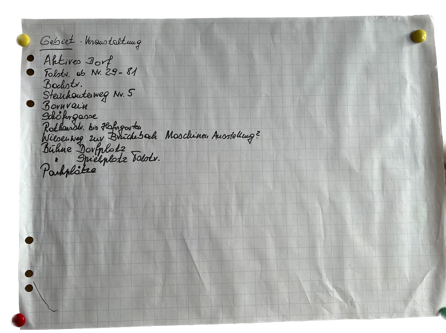 Gebiet - Veranstaltung
Aktives Dorf
Talstr. ab Nr. 29-81
Bachstr.
Steinhauerweg Nr. 5
Bornrain
Schäfergasse
Rathausstr. bis
Wiesenweg zur Maschinen Ausstellung?
Bühne Dorfplatz
" Spielplatz Talstr.
Parkplätze